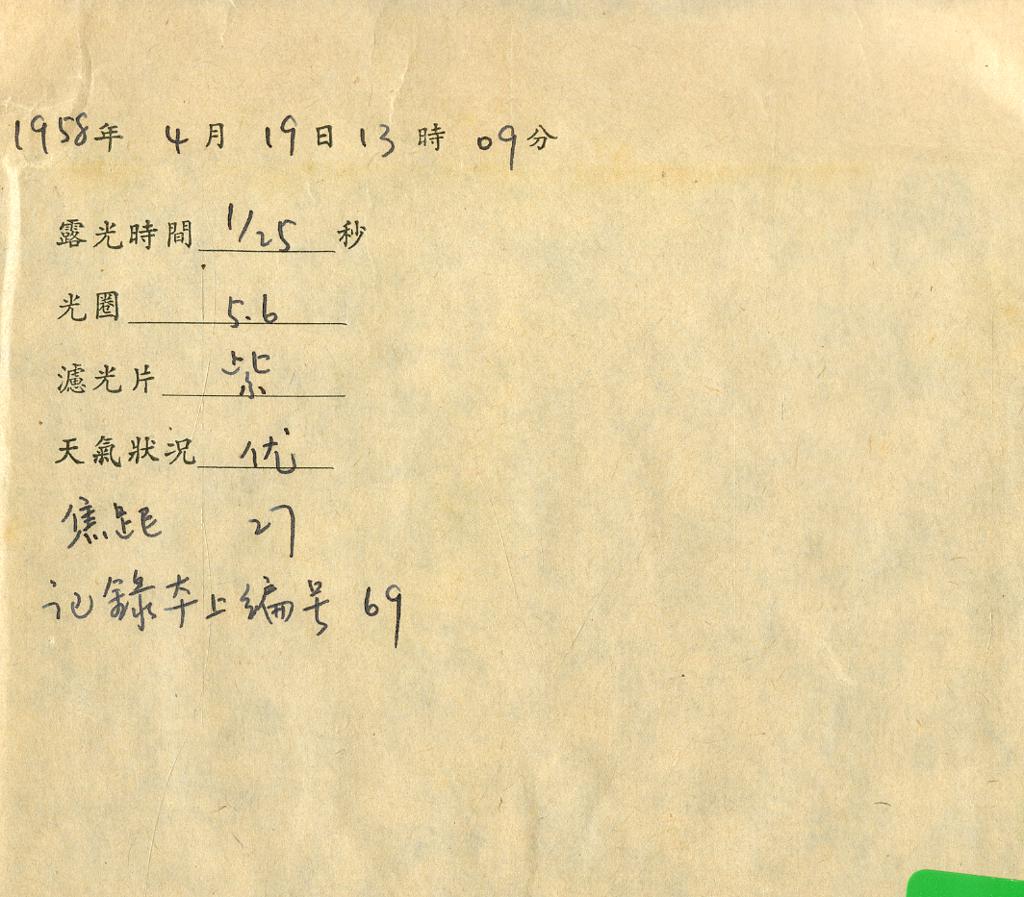 1958年 4月 19日 13時 09分
露光時間 1/25 秒
光圈 5.6
濾光片 紫
天氣狀況 优
焦距 27
记錄本上編号 69